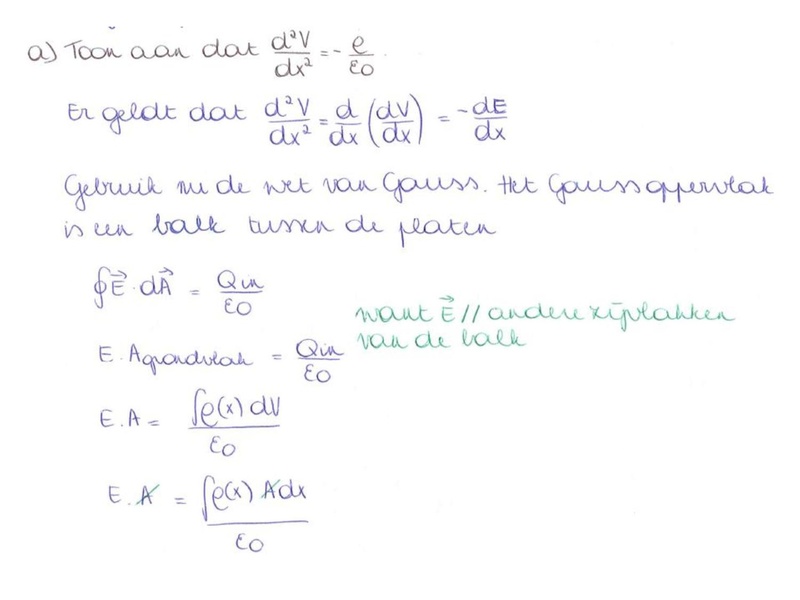 a) Toon aan dat d²V/dx² = - ρ/ε0.
Er geldt dat d²V/dx² = d/dx (dV/dx) = -dE/dx
Gebruik nu de wet van Gauss. Het Gaussoppervlak
is een balk tussen de platen
∮E⃗·dA⃗ = Qin/ε0
want E⃗ // andere zijvlakken
van de balk
E. Agrondvlak = Qin/ε0
E.A = ∫ρ(x) dV/ε0
E.A = ∫ρ(x) Adx/ε0